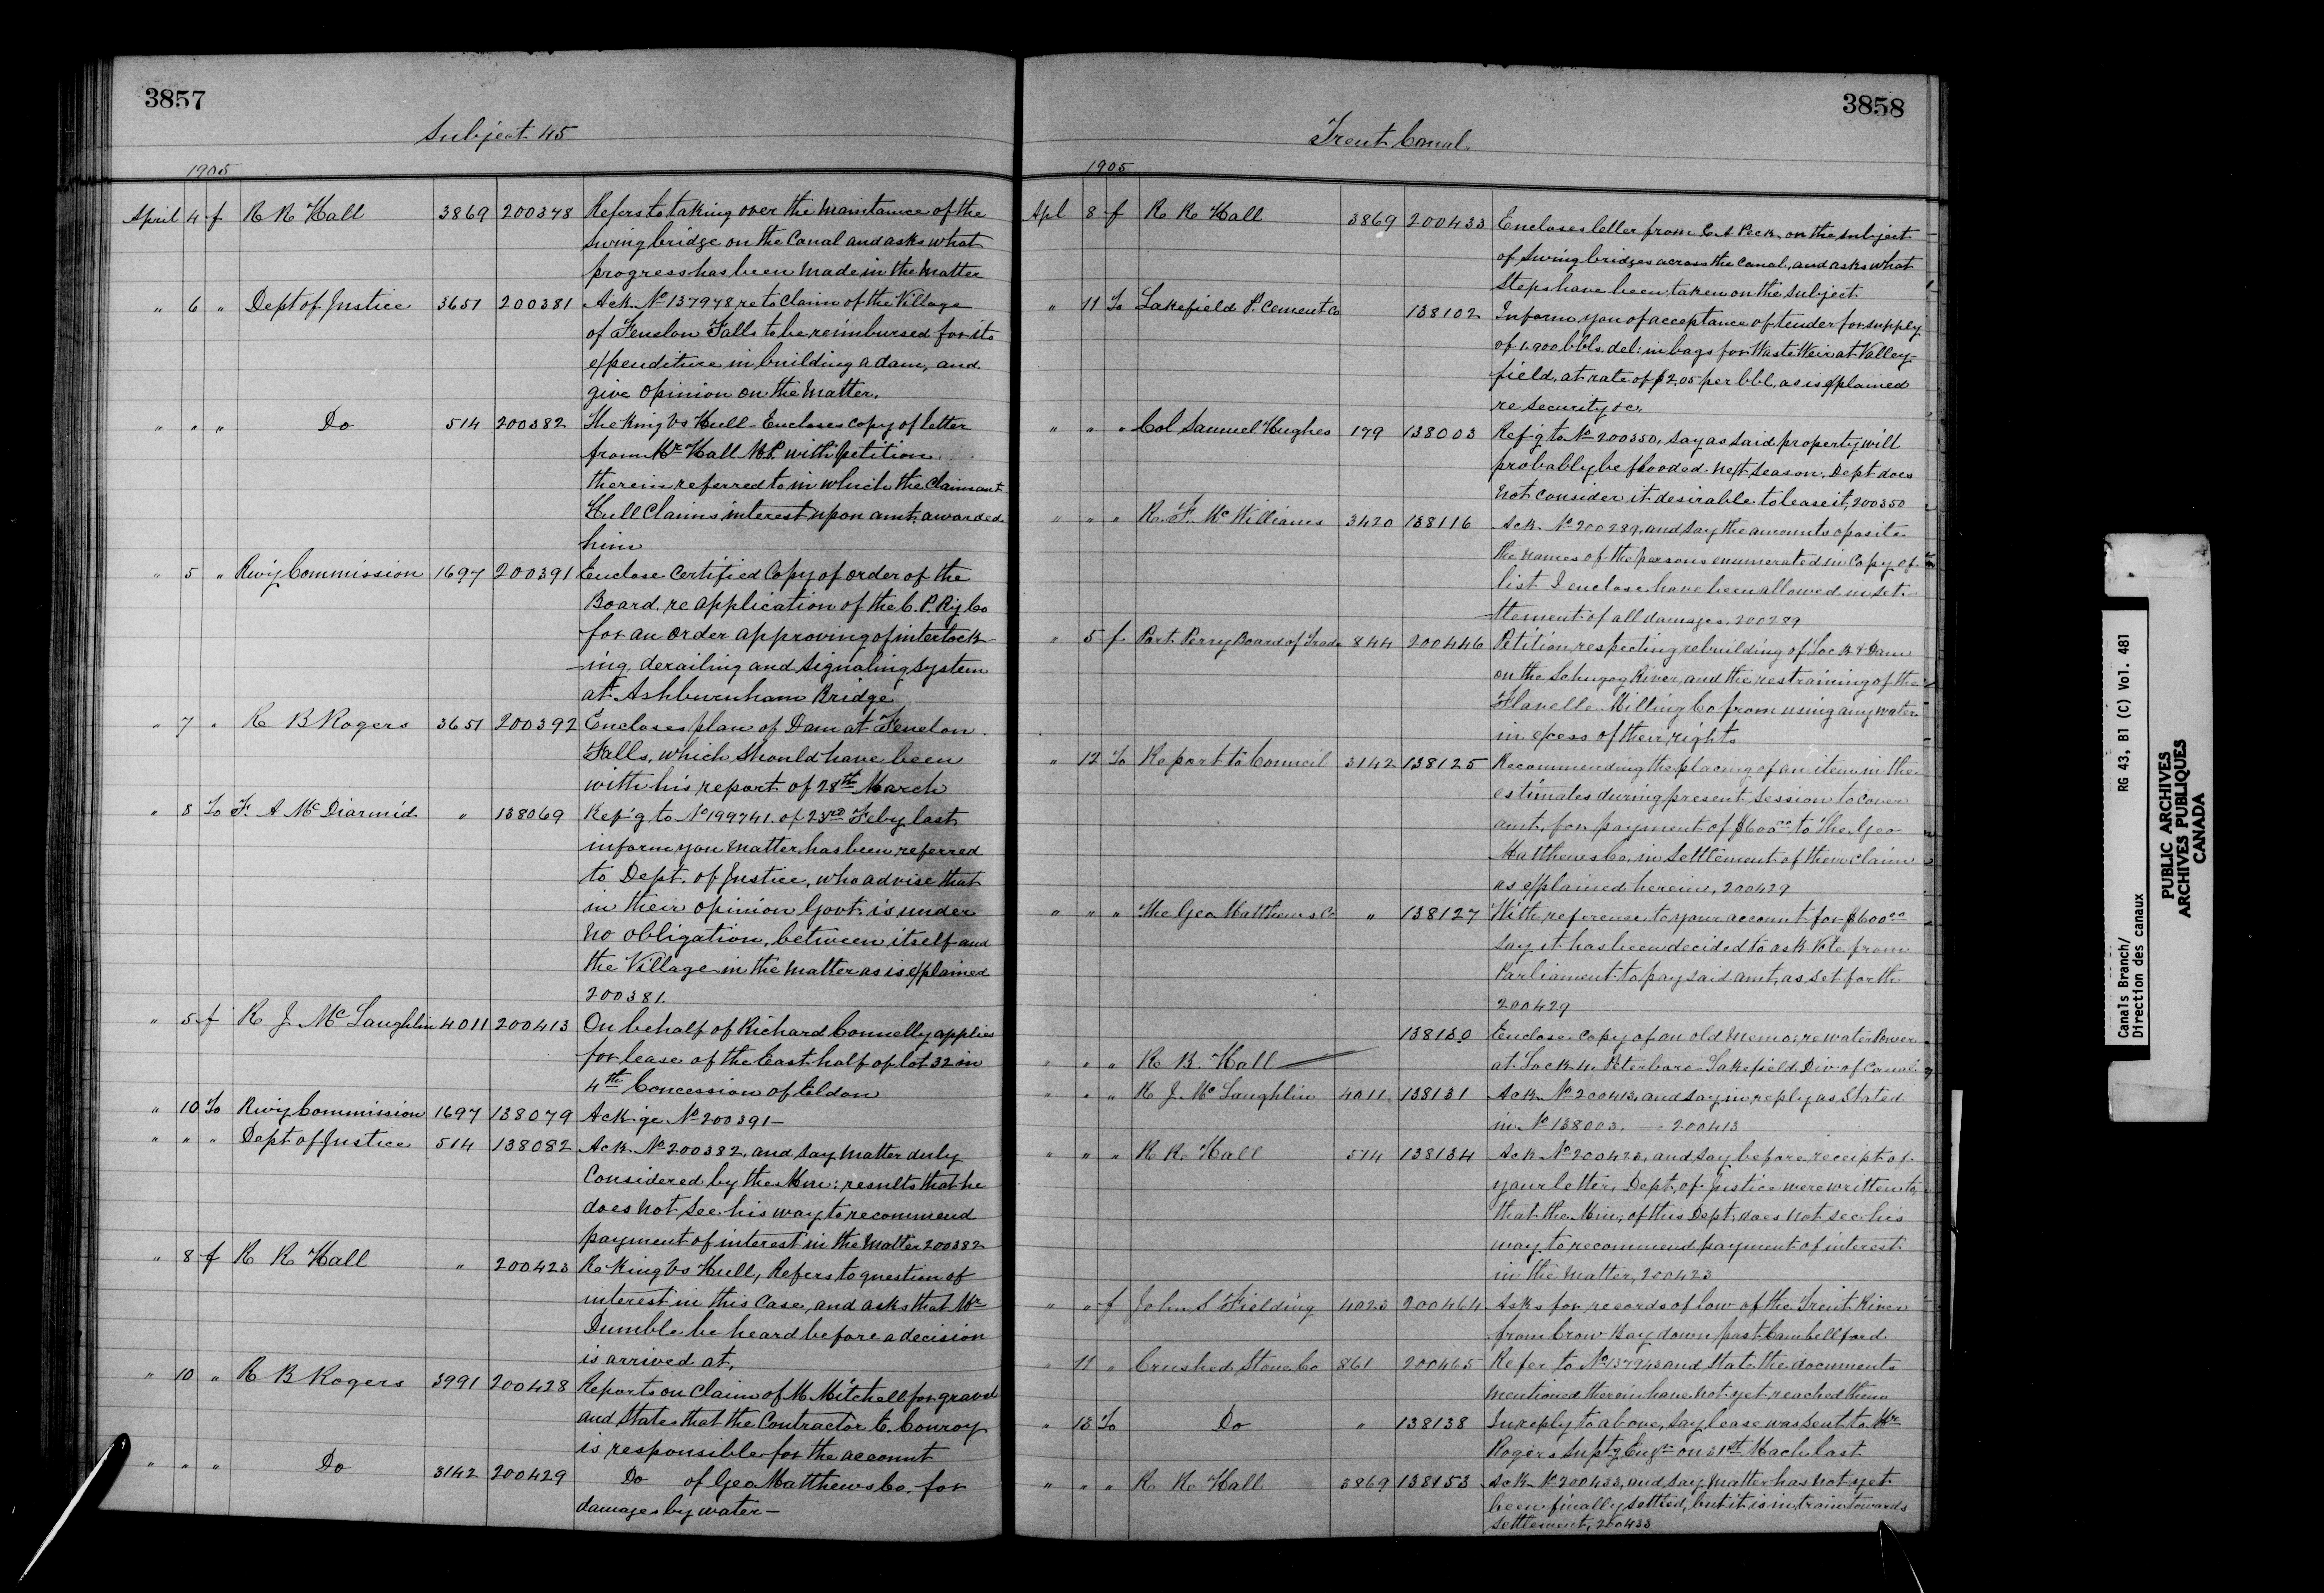 3857
Subject 45
1905
April 4 f R R Hall 3869 200378 Refers to taking over the Maintance of the
Swing bridge on the Canal and asks what
progress has been made in the Matter
" 6 " Dept of Justice 3651 200381 Ack. No 137978 re to Claim of the Village
of Fenelon Falls to be reimbursed for its
expenditure in building a dam, and
give opinion on the Matter.
" " " Do 514 200382 The King vs Hull - Encloses copy of letter
from Mr Hall M.P. with petition
therein referred to in which the Claimant
Hull Claims interest upon amt. awarded
him
" 5 " Rwy Commission 1697 200391 Enclose Certified Copy of order of the
Board, re application of the C. P. Ry Co
for an order approving of interlock-
-ing, derailing and signaling system
at Ashburnham Bridge
" 7 " R B Rogers 3651 200392 Encloses plan of Dam at Fenelon
Falls, which should have been
with his report of 28th March
" 8 To F. A McDiarmid " 138069 Ref'g to No 199741 of 23rd Feby last
inform you matter has been referred
to Dept. of Justice, who advise that
in their opinion Govt. is under
no obligation, between itself and
the Village in the matter as is explained
200381.
" 5 f R J McLaughlin 4011 200413 On behalf of Richard Connelly applies
for lease of the East half of lot 32 in
4th Concession of Eldon
" 10 To Rwy Commission 1697 138079 Ack'ge No 200391 -
" " " Dept of Justice 514 138082 Ack No 200382, and say matter duly
Considered by the Min: results that he
does not see his way to recommend
payment of interest in the matter 200382
" 8 f R R Hall " 200423 Re King vs Hull, Refers to question of
interest in this Case, and asks that Mr
Dumble be heard before a decision
is arrived at.
" 10 " R B Rogers 3991 200428 Reports on Claim of M. Mitchell for gravel
and states that the Contractor C. Conroy
is responsible for the account
" " " Do 3142 200429 Do of Geo Matthews Co. for
damages by water -
3858
Trent Canal.
1905
Apl 8 f R R Hall 3869 200433 Encloses letter from E A Peck on the subject
of Swing bridges across the Canal, and asks what
Steps have been taken on the Subject
" 11 To Lakefield P. Cement Co 138102 Inform you of acceptance of tender for supply
of 1.900 bbls. del: in bags for Waste Weir at Valley-
field, at rate of $2.05 per bbl, as is explained
re security &c.
" " " Col Samuel Hughes 179 138003 Ref'g to No 200350, say as said property will
probably be flooded next season, Dept does
not consider it desirable to lease it, 200350
" " " R. F. McWilliams 3420 138116 Ack. No 200289, and say the amounts oposite
the names of the persons enumerated in Copy of
list I enclose have been allowed in set-
tlement of all damages, 200289
" 5 f Port Perry Board of Trade 844 200446 Petition respecting rebuilding of Lock & Dam
on the Schugog River, and the restraining of the
Flavelle Milling Co from using any water
in excess of their rights
" 12 To Report to Council 3142 138125 Recommending the placing of an item in the
estimates during present Session to cover
amt, for payment of $600.00 to The Geo
Matthews Co, in settlement of their claim
as explained herein, 200429
" " " The Geo Matthews Co " 138127 With reference to your account for $600.00
say it has been decided to ask Vote from
Parliament to pay said amt, as set forth
200429
138130 Enclose Copy of an old Memo; re water Power
" " " R. B. Hall at Lock 4. Peterboro - Lakefield Div. of Canal
" " " R J McLaughlin 4011 138131 Ack No 200413, and say in reply as Stated
in No 138003. - 200413
" " " R R. Hall 514 138134 Ack No 200423, and say before receipt of
your letter, Dept. of Justice were written to
that the Min; of this Dept. does not see his
way to recommend payment of interest
in the Matter, 200423
" " f John S Fielding 4023 200464 Asks for records of low of the Trent River
from Crow Bay down past Cambellford
" 11 " Crushed Stone Co 861 200465 Refer to No 137943 and state the documents
mentioned therein have not yet reached them
" 13 To Do " 138138 In reply to above, say lease was sent to Mr
Rogers Supt'g Engr on 31st Mach last
" " " R R. Hall 3869 138153 Ack No 200433, and say matter has not yet
been finally settled, but it is in train towards
settlement, 200433
Canals Branch/ RG 43, B1 (C) Vol. 481
Direction des canaux
PUBLIC ARCHIVES
ARCHIVES PUBLIQUES
CANADA